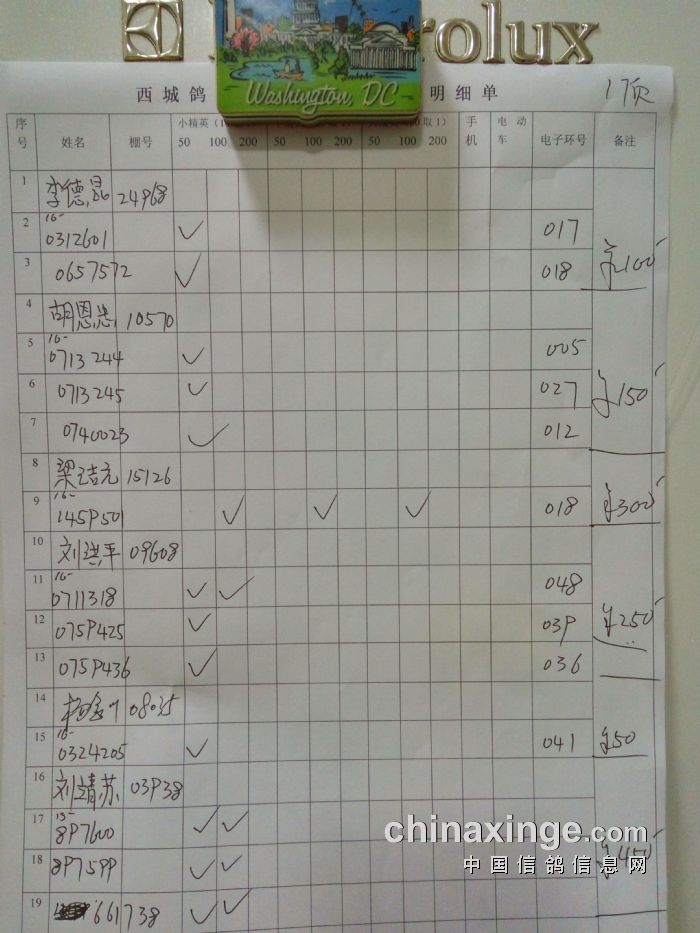 rolux
Washington, DC
西城鸽 明细单 17页
序号 姓名 棚号 小精英(1 取1) 手机 电动车 电子环号 备注
50 100 200 100 200 100 200
1 李德昆 24968
2 16- 0312601 ✓ 017
3 0657572 ✓ 018 ¥100
4 胡恩忠 10570
5 16- 0713244 ✓ 005
6 0713245 ✓ 027 ¥150
7 0740023 ✓ 012
8 梁洁元 15126
9 16- 1459501 ✓ ✓ ✓ 018 ¥300
10 刘洪平 09608
11 16- 0711318 ✓ ✓ 048
12 0759425 ✓ 039 ¥250
13 0759436 ✓ 036
14 08035
15 16- 0324205 ✓ 041 ¥50
16 刘靖苏 03938
17 15- 897600 ✓ ✓
18 897599 ✓ ✓ ¥450
19 661738 ✓ ✓
chinaxinge.com
中国信鸽信息网